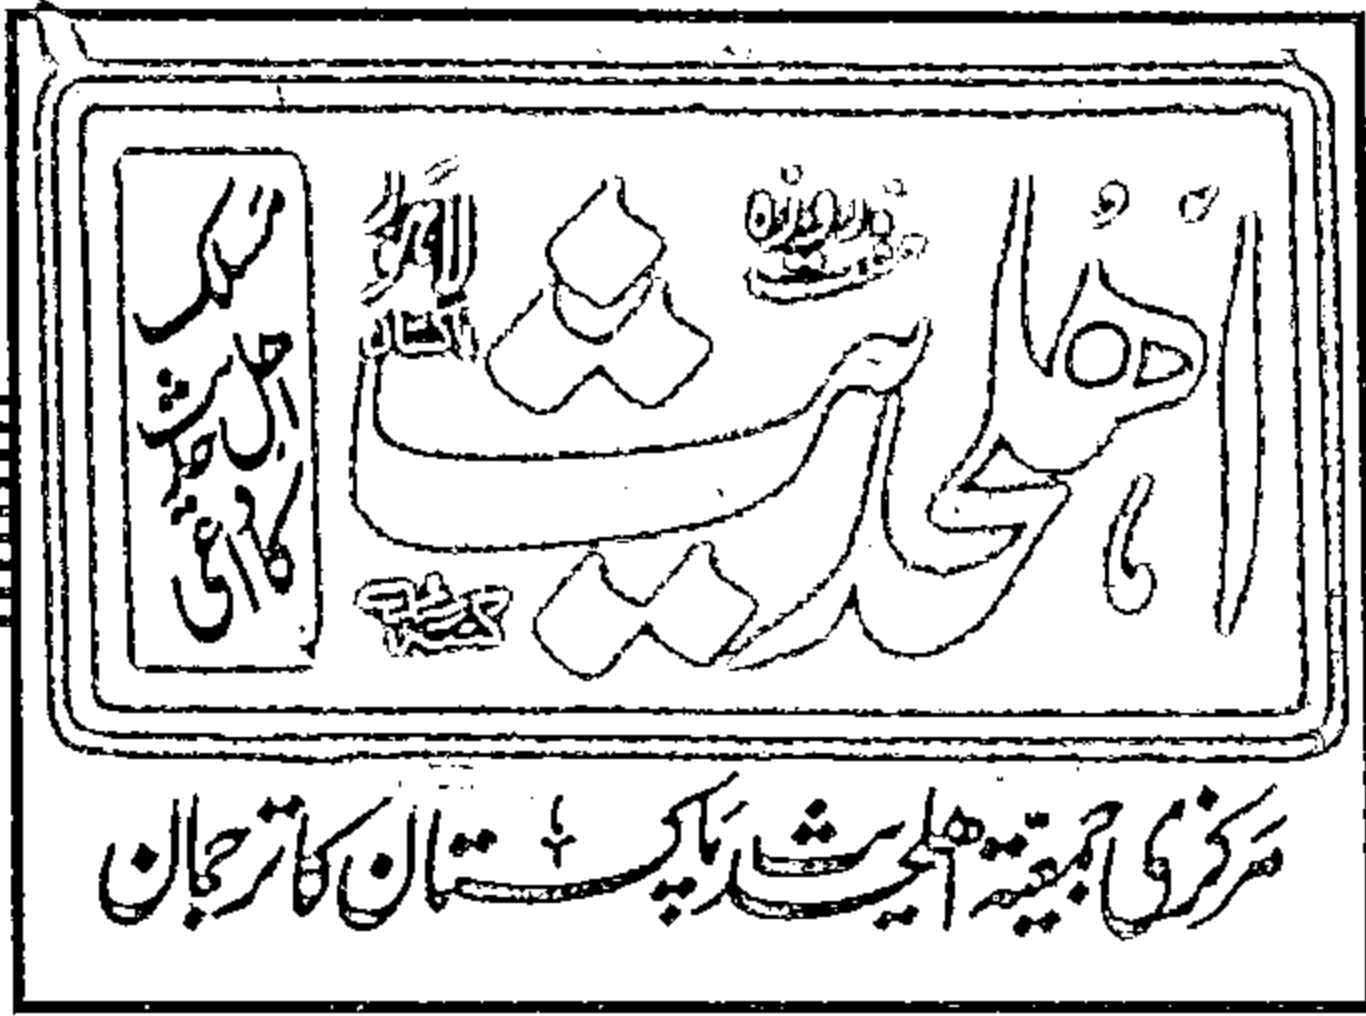 ہفت روزہ
اہلحدیث
لاہور
پاکستان
مسلک
اہل حدیث
کا داعی
مرکزی جمعیۃ اہلحدیث پاکستان کا ترجمان